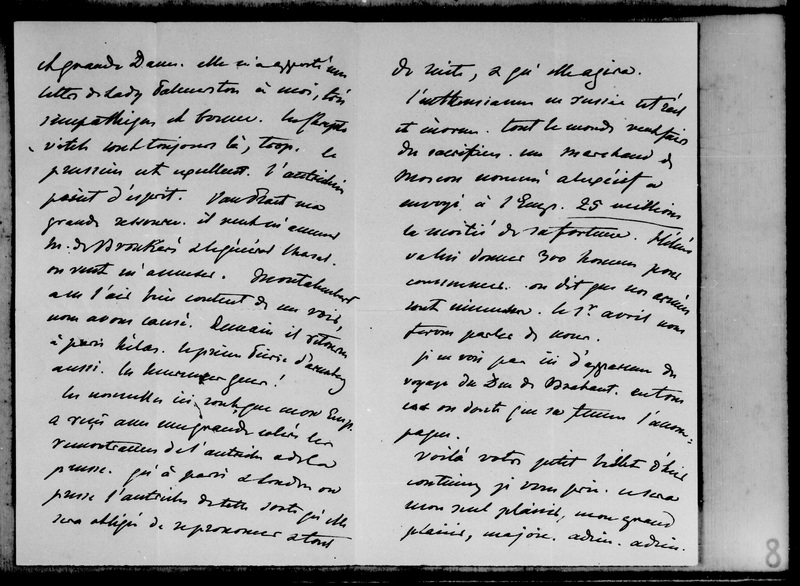 et grande Dame. elle m'a apporté une
lettre de Lady Palmerston à moi, très
sympathique et bonne. les
visites sont toujours là, trop. le
prussien est excellent. l'autrichien
point d'esprit. Van Praet ma
grande ressource. il veut m'amener
M. de Brouckère et le général Chazal.
on veut m'amuser. Montalembert
a eu l'air bien content de me voir,
nous avons causé. Demain il retourne
à paris hélas. le prince Pierre d'Aremberg
aussi. les heureux gens!
les nouvelles ici sont que mon Emp.
a reçu avec une grande colère les
remontrances de l'autriche et de la
prusse. qu'à paris et Londres on
presse l'autriche de telle sorte qu'elle
sera obligée de se prononcer et tout
de suite, et qu'elle agira.
l'enthousiasme en russie est réel
et énorme. tout le monde veut faire
des sacrifices. un marchand de
Moscou nommé a
envoyé à l'Emp. 25 millions
la moitié de sa fortune. Hélène
va lui donner 300 hommes pour
commencer. on dit que nos armées
sont immenses. le 1r. avril nous
ferons parler de nous.
je ne vois pas ici d'apparence du
voyage du Duc de Brabant. en tous
cas on doute que sa femme l'accom-
pagne.
Voilà votre petit billet d'hier
continuez je vous prie. ce sera
mon seul plaisir, mon grand
plaisir, majore. adieu. adieu.
8